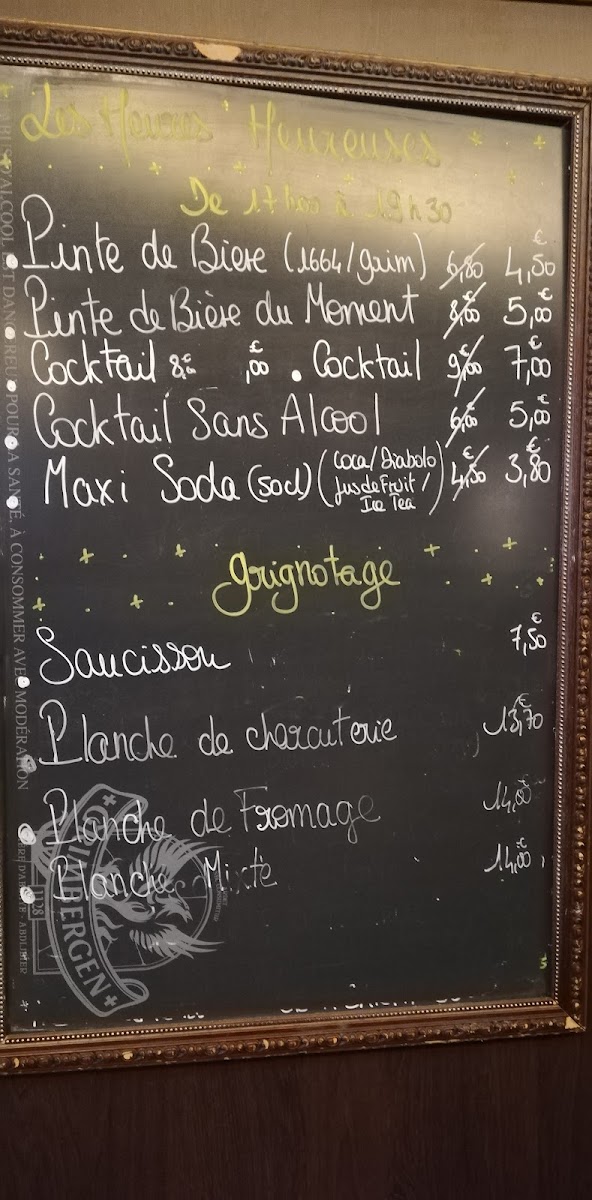 Les Heures Heureuses
De 17h00 à 19h30
Pinte de Biere (1664/grim) 6,80 4,50€
Pinte de Bière du Moment 8,00 5,00€
Cocktail 8€ ,00€ . Cocktail 9,00 7,00€
Cocktail Sans Alcool 6,00 5,00€
Maxi Soda (50cl) (Coca/Diabolo
Jus de Fruit/
Ice Tea) 4,50 3,80€
grignotage
Saucisson 7,50€
Planche de charcuterie 13,70€
Planche de Fromage 14,00€
Planche Mixte 14,00€
GRIMBERGEN
L'ABUS D'ALCOOL EST DANGEREUX POUR LA SANTÉ, À CONSOMMER AVEC MODÉRATION